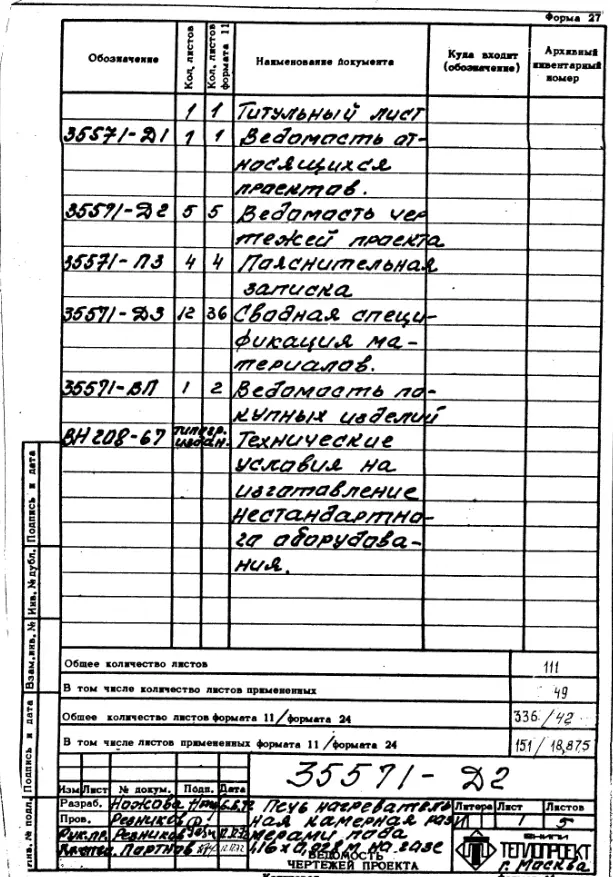 Форма 27
Обозначение Кол. листов Кол. листов формата 11 Наименование документа Куда входит (обозначение) Архивный инвентарный номер
1 1 Титульный лист
35571-Д1 1 1 Ведомость от-
носящихся
проектов.
35571-Д2 5 5 Ведомость чер
тежей проекта
35571-ПЗ 4 4 Пояснительная
записка
35571-Д3 12 36 Сводная специ-
фикация ма-
териалов.
35571-ВП 1 2 Ведомость по-
купных изделий
ВН 208-67 типогр. издан. Технические
условия на
изготовление
нестандартно-
го оборудова-
ния.
Общее количество листов 111
В том числе количество листов примененных 49
Общее количество листов формата 11/формата 24 336/42
В том числе листов примененных формата 11/формата 24 151/18,875
35571-Д2
Изм Лист № докум. Подп. Дата
Разраб. Ножова
Пров. Резников
Рук.пр. Резников
Портнов
Печь нагреватель
ная камерная разм
мерами пода
х на газе
ВЕДОМОСТЬ
ЧЕРТЕЖЕЙ ПРОЕКТА
Литера Лист Листов
1 5
ВНИПИ
ТЕПЛОПРОЕКТ
г. Москва
Инв. № подл.
Подпись и дата
Взам.инв. №
Инв. № дубл.
Подпись и дата